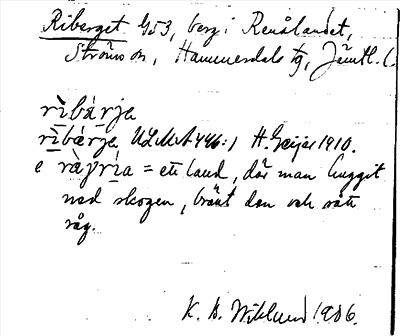 Riberget G53, berg i Renålandet,
Ströms sn, Hammerdals tg, Jämtl. l.
rìbárja
rìbǽrja ULMA 446:1 H. Geijer 1910.
e rà̱yrìa = ett land, där man huggit
ned skogen, bränt den och sått
råg.
K. B. Wiklund 1906.